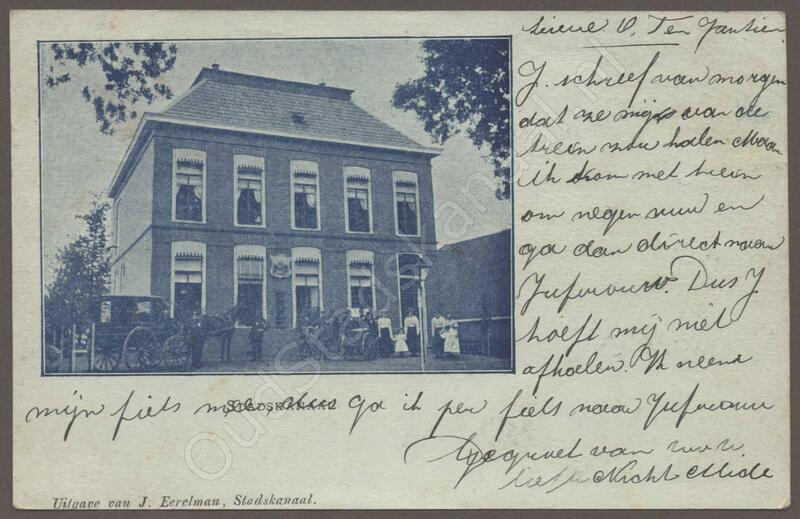 Lieve O. Ten Jantien
J. schreef van morgen
dat ze mij van de
trein zou halen Maar
ik kom met trein
om negen uur en
ga dan direct naar
Jufvrouw. Dus J
hoeft mij niet
afhalen. Ik neem
mijn fiets mee dus ga ik per fiets naar Jufvrouw
STADSKANAAL
Gegroet van uw
liefh Nicht Mide
Uitgave van J. Eerelman, Stadskanaal.